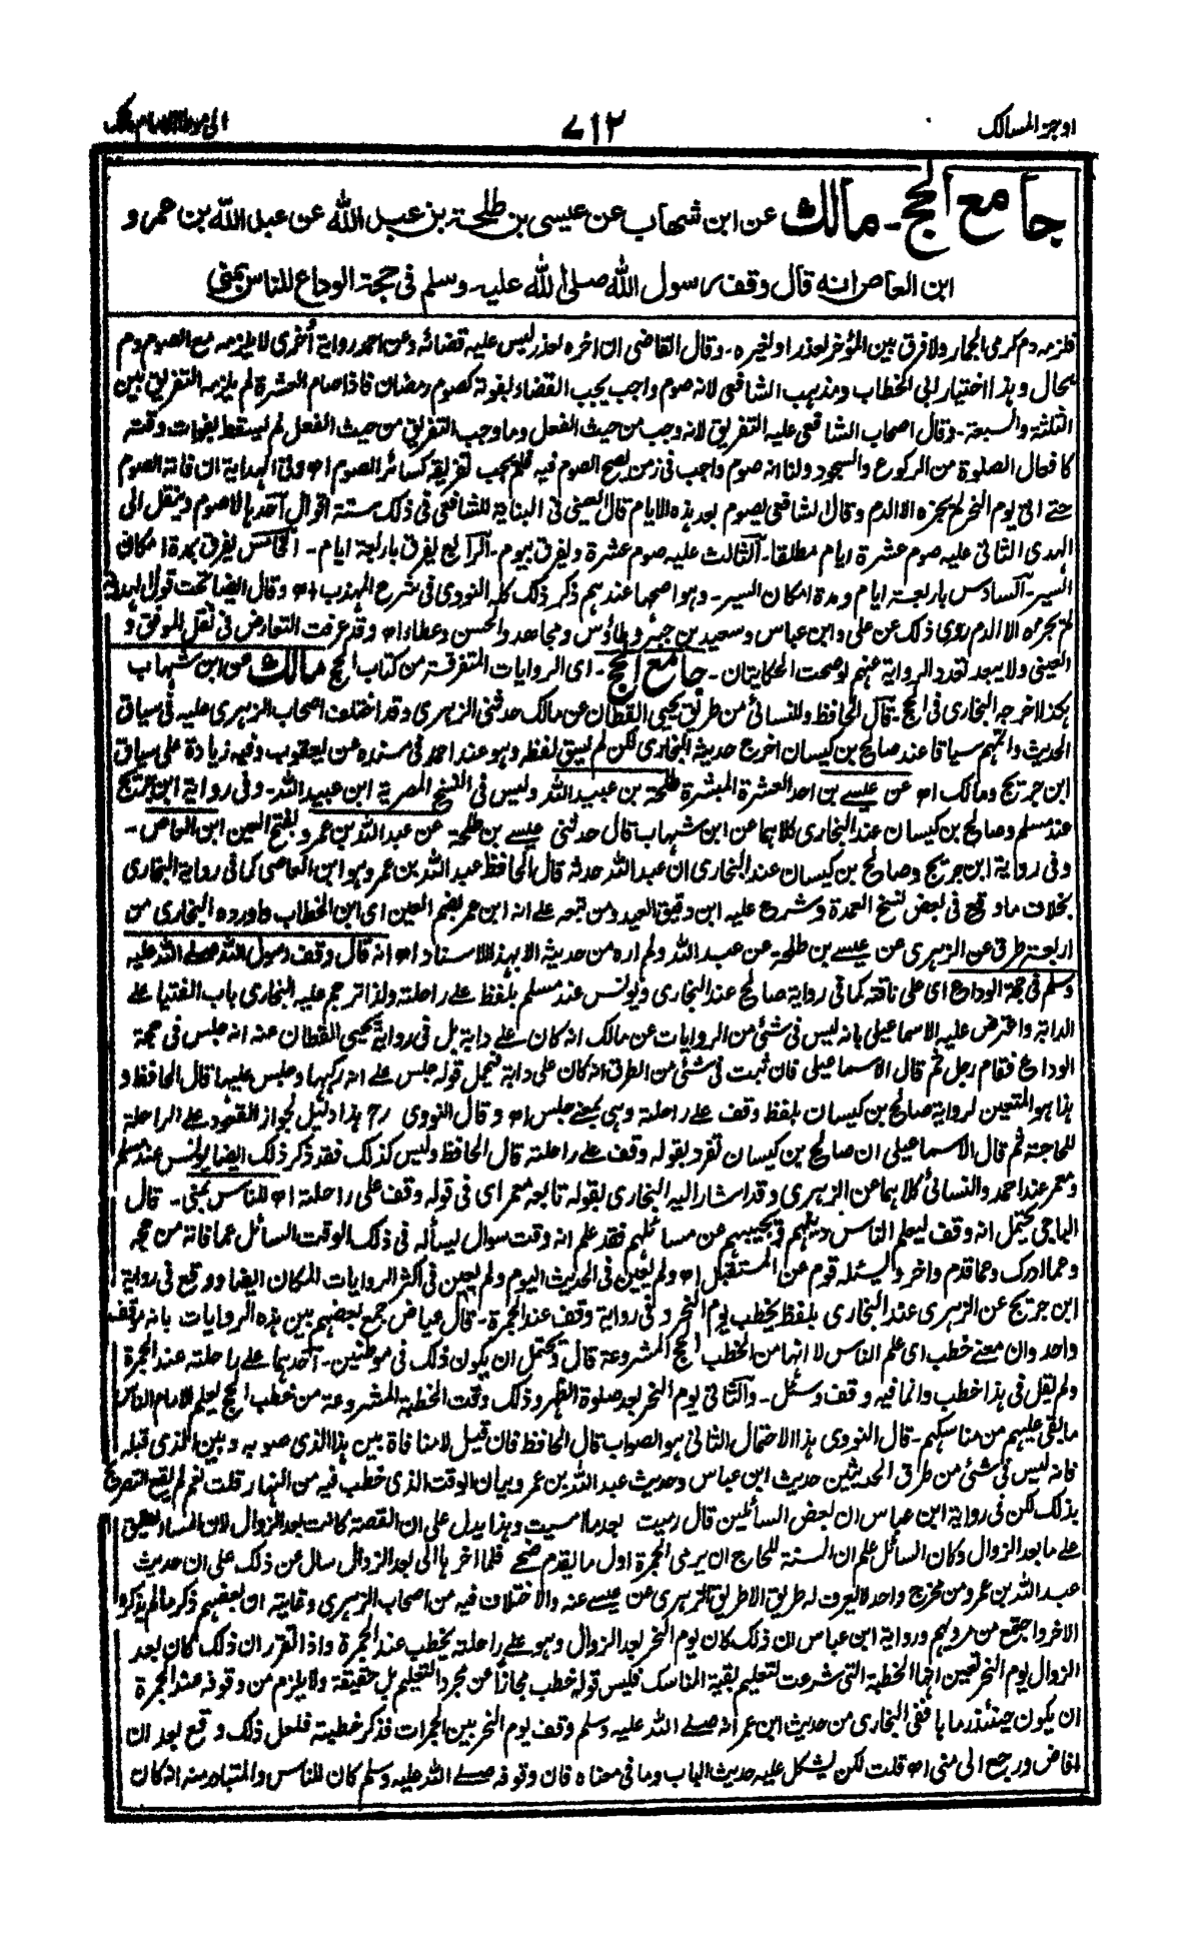 اوجز المسالك ٧١٢ الى موطا الامام مالك
جامع الحج - مالك عن ابن شهاب عن عيسى بن طلحة بن عبد الله عن عبد الله بن عمرو
ابن العاص انه قال وقف رسول الله صلى الله عليه وسلم فى حجة الوداع للناس بمنى
فلزمه دم كرمى الجمار ولا فرق بين المؤخر لعذر او لغيره - وقال القاضى ان اخره لعذر ليس عليه قضائه وعن احمد رواية أخرى لا يلزمه مع الصوم دم
بحال وهذا اختيار ابى الخطاب ومذهب الشافعى لانه صوم واجب يجب القضاء لفوته كصوم رمضان فاذا صام العشرة لم يلزمه التفريق بين
الثلثة والسبعة - وقال اصحاب الشافعى عليه التفريق لانه وجب من حيث الفعل وما وجب التفريق من حيث الفعل لم يسقط بفوات وقته
كافعال الصلوة من الركوع والسجود ولنا انه صوم واجب فى زمن يصح الصوم فيه فلم يجب تفريقه كسائر الصوم اھ وفى الهداية ان فاتة الصوم
حتے اتى يوم النحر لم يجزه الا الدم وقال الشافعى يصوم بعد هذه الايام قال العينى فى البناية للشافعى فى ذلك ستة اقوال احدها لا صوم وينقل الى
الهدى الثانى عليه صوم عشرة ايام مطلقا - الثالث عليه صوم عشرة ويفرق بيوم - الرابع يفرق باربعة ايام - الخامس يفرق بمدة امكان
السير - السادس باربعة ايام ومدة امكان السير - وهو اصحها عندهم ذكر ذلك كله النووى فى شرح المهذب اھ وقال ايضا تحت قول الهداية
لم يجزه الا الدم روى ذلك عن على وابن عباس وسعيد بن جبير وطاؤس ومجاهد والحسن وعطاء اھ وقد عرفت التعارض فى نقل الموفق و
العينى ولا يبعد تعدد الرواية عنهم لو صحت الحكايتان - جامع الحج - اى الروايات المتفرقة من كتاب الحج مالك عن ابن شهاب
هكذا اخرجه البخارى فى الحج - قال الحافظ وللنسائى من طريق يحيى القطان عن مالك حدثنى الزهرى وقد اختلف اصحاب الزهرى عليه فى سياق
الحديث واتمهم سياقا عند صالح بن كيسان اخرج حديثه البخارى لكن لم يسق لفظه وهو عند احمد فى مسنده عن يعقوب وفيه زيادة على سياق
ابن جريج ومالك اھ عن عيسے بن احد العشرة المبشرة طلحة بن عبيد الله وليس فى النسخ المصرية ابن عبيد الله - وفى رواية ابن جريج
عند مسلم وصالح بن كيسان عند البخارى كلاهما عن ابن شهاب قال حدثنى عيسے بن طلحة عن عبد الله بن عمرو بفتح العين ابن العاص -
وفى رواية ابن جريج وصالح بن كيسان عند البخارى ان عبد الله حدثه قال الحافظ عبد الله بن عمرو هو ابن العاصى كما فى رواية البخارى
بخلاف ما وقع فى بعض نسخ العمدة وشرح عليه ابن دقيق العيد ومن تبعه علے انه ابن عمر بضم العين اى ابن الخطاب واورده البخارى من
اربعة طرق عن الزهرى عن عيسے بن طلحة عن عبد الله ولم اره من حديثه الا بهذا الاسناد اھ انه قال وقف رسول الله صلے الله عليه
وسلم فى حجة الوداع اى على ناقته كما فى رواية صالح عند البخارى ويونس عند مسلم بلفظ علے راحلته ولذا ترجم عليه البخارى باب الفتيا علے
الدابة واعترض عليه الاسماعيلى بانه ليس فى شئ من الروايات عن مالك انه كان علے دابة بل فى رواية يحيى القطان عنه انه جلس فى حجة
الوداع فقام رجل ثم قال الاسماعيلى فان ثبت فى شئ من الطرق انه كان على دابة فيحمل قوله جلس علے انه ركبها وجلس عليها قال الحافظ و
هذا هو المتعين لرواية صالح بن كيسان بلفظ وقف علے راحلته وهى بمعنے جلس اھ وقال النووى رح هذا دليل لجواز القعود علے الراحلة
للحاجة ثم قال الاسماعيلى ان صالح بن كيسان تفرد بقوله وقف علے راحلته قال الحافظ وليس كذلك فقد ذكر ذلك ايضا يونس عند مسلم
ومعمر عند احمد والنسائى كلاهما عن الزهرى وقد اشار اليه البخارى بقوله تابعه معمر اى فى قوله وقف على راحلته اھ للناس بمنى - قال
الباجى يحتمل انه وقف ليعلم الناس دينهم ويجيبهم عن مسائلهم فقد علم انه وقت سوال يسأله فى ذلك الوقت السائل عما فاته من حجه
وعما ادرك وعما قدم واخر ويسئله قوم عن المستقبل اھ ولم يعين فى الحديث اليوم ولم يعين فى اكثر الروايات المكان ايضا ووقع فى رواية
ابن جريج عن الزهرى عند البخارى بلفظ يخطب يوم النحر وفى رواية وقف عند الجمرة - قال عياض جمع بعضهم بين هذه الروايات بانه موقف
واحد وان معنے خطب اى علم الناس لا انها من الخطب الحج المشروعة قال ويحتمل ان يكون ذلك فى موطنين - احدهما علے راحلته عند الجمرة
ولم يقل فى هذا خطب وانما فيه وقف وسئل - والثانى يوم النحر بعد صلوة الظهر وذلك وقت الخطبة المشروعة من خطب الحج يعلم الامام الناس
ما بقى عليهم من مناسكهم - قال النووى هذا الاحتمال الثانى هو الصواب قال الحافظ فان قيل لا منافاة بين هذا الذى صوبه وبين الذى قبله
فانه ليس فى شئ من طرق الحديثين حديث ابن عباس وحديث عبد الله بن عمرو بيان الوقت الذى خطب فيه من النهار قلت نعم لم يقع التصريح
بذلك لكن فى رواية ابن عباس ان بعض السائلين قال رميت بعد ما امسيت وهذا يدل على ان القصة كانت بعد الزوال لان المساء يطلق
علے ما بعد الزوال وكان السائل علم ان السنة للحاج ان يرمى الجمرة اول ما يقدم ضحے فلما اخرها الى بعد الزوال سال عن ذلك على ان حديث
عبد الله بن عمرو من مخرج واحد لا يعرف له طريق الا طريق الزهرى عن عيسے عنه والاختلاف فيه من اصحاب الزهرى وغايته ان بعضهم ذكر ما لم يذكره
الاخر واجتمع من مرويهم ورواية ابن عباس ان ذلك كان يوم النحر بعد الزوال وهو علے راحلته يخطب عند الجمرة واذا تقرر ان ذلك كان بعد
الزوال يوم النحر تعين انها الخطبة التى شرعت لتعليم بقية المناسك فليس قوله خطب مجازا عن مجرد التعليم بل حقيقة ولا يلزم من وقوفه عند الجمرة
ان يكون حينئذ رماها ففى البخارى من حديث ابن عمر انه صلے الله عليه وسلم وقف يوم النحر بين الجمرات فذكر خطبته فلعل ذلك وقع بعد ان
افاض ورجع الى منى اھ قلت لكن يشكل عليه حديث الباب وما فى معناه فان وقوفه صلے الله عليه وسلم كان للناس والمتبادر منه انه كان